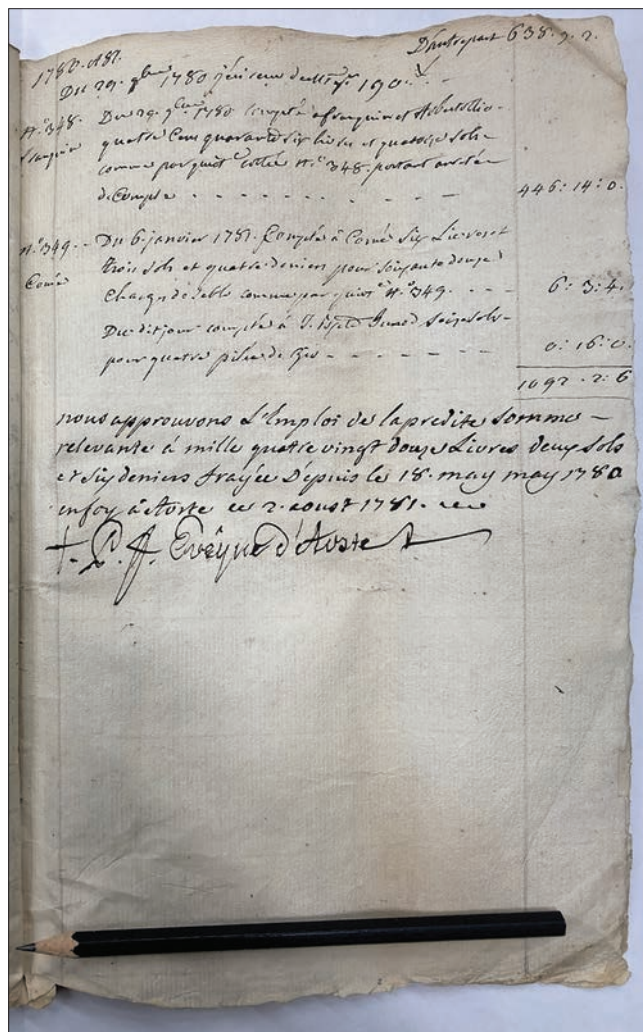 1780. et 81.
D'autrepart 638. 9. 2.
Du 29. 9bre 1780
190.
N.° 348. Du 29. 9bre 1780 compté a franquin et
franquin quatre Cens quarante six livres et quatorze sols
comme par quitce cottée N.° 348. portant
de Compte - - - 446: 14: 0.
N.° 349. Du 6. janvier 1781. Compté à Comé Six Livres et
Comé trois sols et quatre deniers pour soixante douze
Charges de sable comme par quitce N.° 349. - - - 6: 3: 4.
Du dit jour compté à J. Bapte seize sols
pour quatre - - - 0: 16: 0.
1092. 2: 6
nous approuvons L'Emploi de la predite Somme
relevante à mille quatre vingt douze Livres deux sols
et six deniers frayée Depuis le 18. may may 1780
en foy à Aoste ce 2. aoust 1781.
†. P. F. Evêque d'Aoste